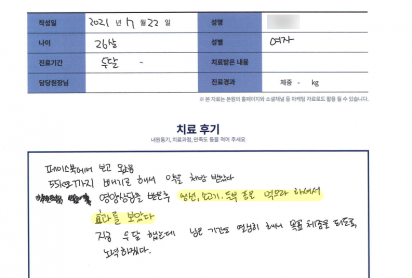 작성일 2021년 7월 22일 성명
나이 26살 성별 여자
진료기간 두달 - 치료받은 내용
담당원장님 진료경과 체중 - kg
※ 본 자료는 본원의 홈페이지와 소셜채널 등 마케팅 자료로도 활용 될 수 있습니다.
치료 후기
내원동기, 치료과정, 만족도 등을 적어 주세요
페이스북에서 보고 옴
55사이즈까지 빼기로 해서 약을 처방 받았다
영양상담을 받은후 생선, 소고기, 두부 등을 먹으라 하셔서
효과를 보았다
지금 두달 했는데 남은 기간도 열심히 해서 목표 체중을 되도록,
노력하겠다.